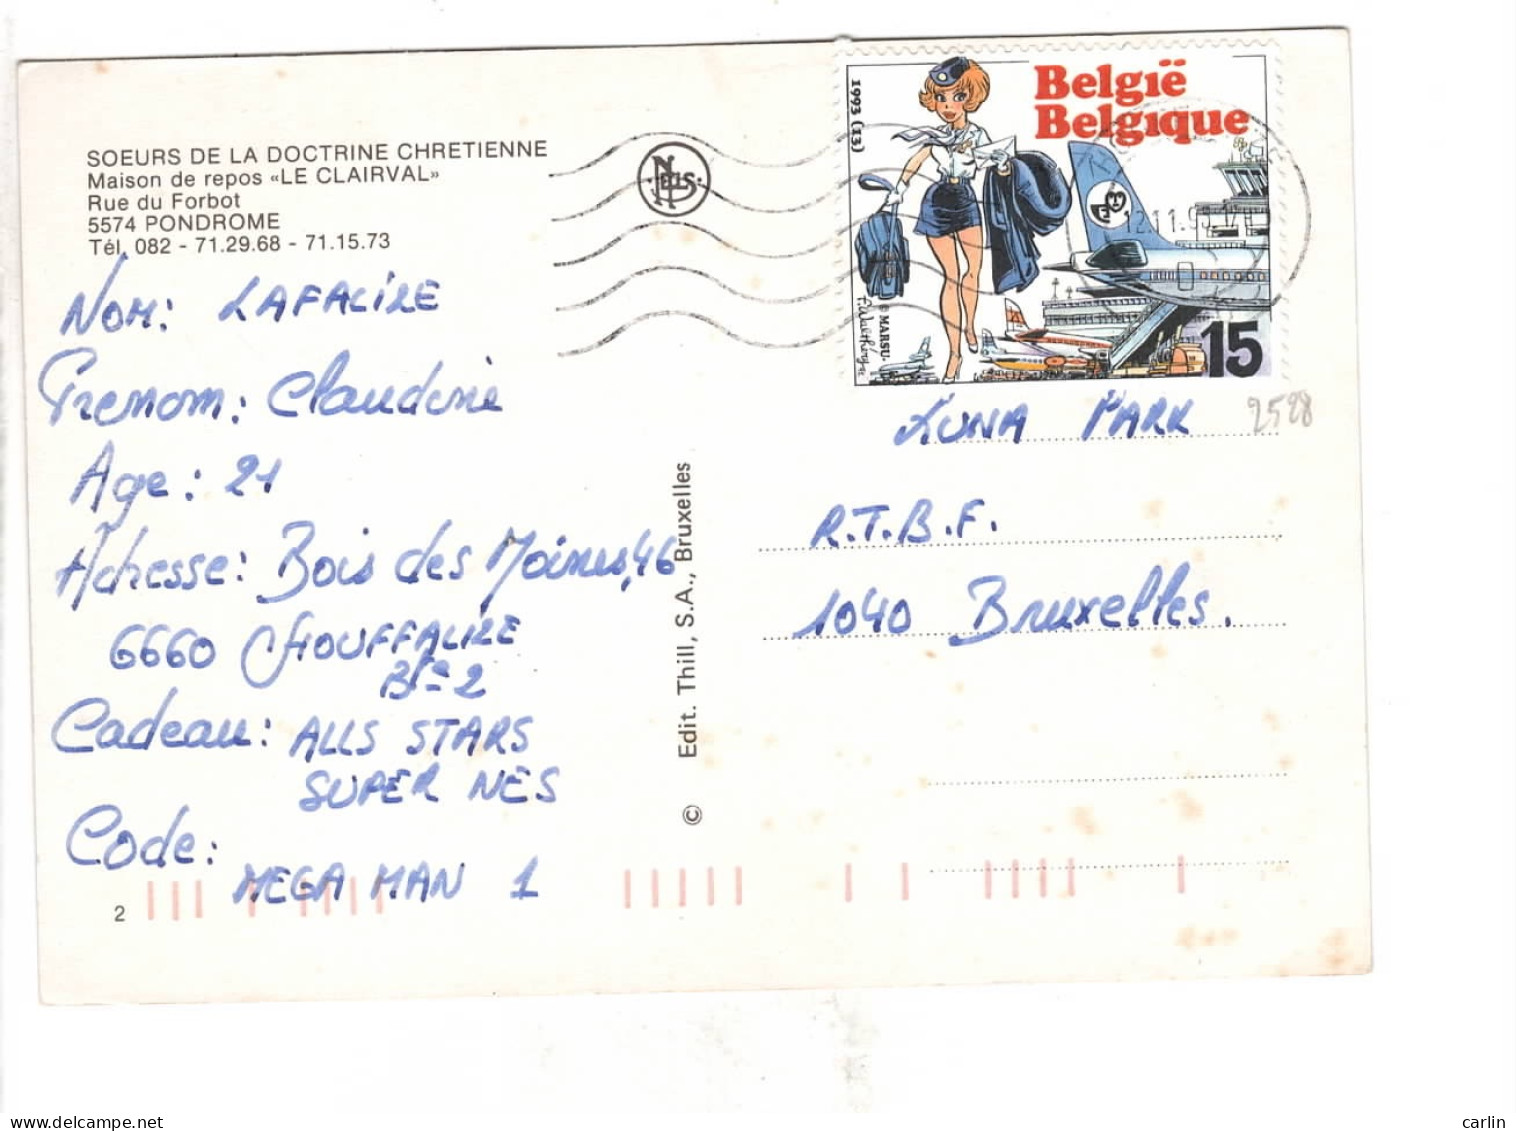 SOEURS DE LA DOCTRINE CHRETIENNE
Maison de repos «LE CLAIRVAL»
Rue du Forbot
5574 PONDROME
Tél. 082 - 71.29.68 - 71.15.73
NELS
België
Belgique
1993 (13)
© MARSU-
F. Walthéry
15
12.11.93
NOM: LAFALIZE
Prenom: Claudine
Age: 21
Adresse: Bois des Moines, 46
6660 HOUFFALIZE
Bte 2
Cadeau: ALLS STARS
SUPER NES
Code:
MEGA MAN 1
2
© Edit. Thill, S.A., Bruxelles
LUNA PARK
2528
R.T.B.F.
1040 Bruxelles.
carlin